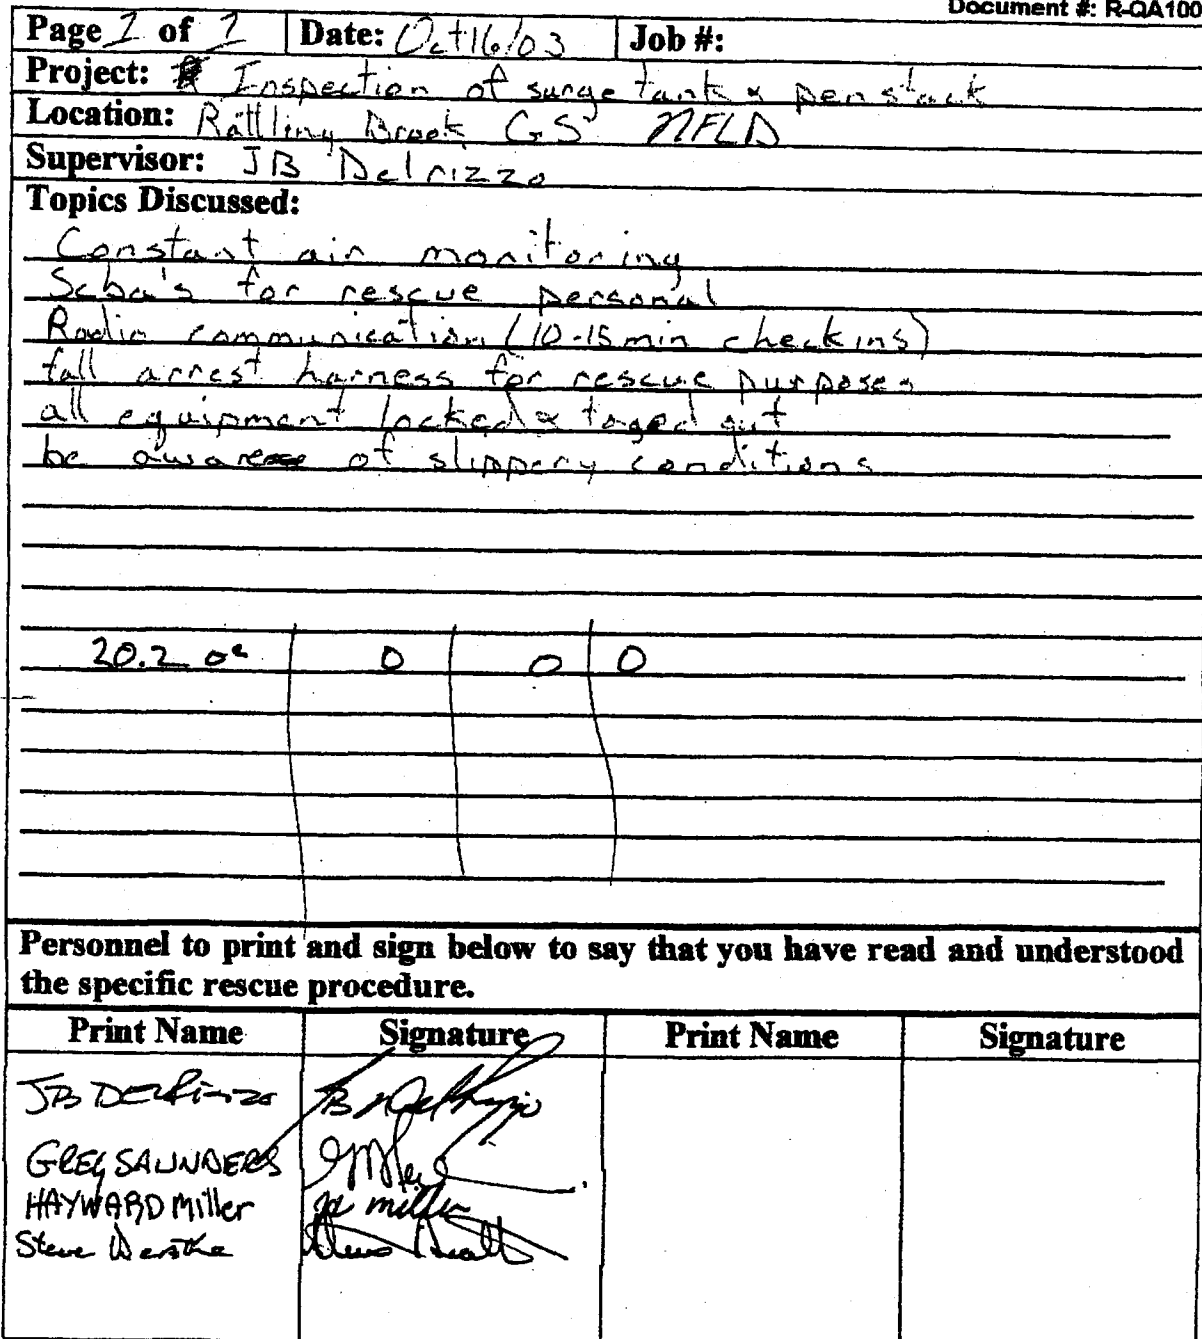 Document #: R-QA100
Page 1 of 1 Date: Oct 16/03 Job #:
Project: Inspection of surge tank & penstack
Location: Rattling Brook GS NFLD
Supervisor: JB Delrizzo
Topics Discussed:
Constant air monitoring
Scba's for rescue personal
Radio communication (10-15min checkins)
fall arrest harness for rescue purposes
all equipment locked & taged out
be aware of slippery conditions
20.2 o² 0 0 0
Personnel to print and sign below to say that you have read and understood
the specific rescue procedure.
Print Name Signature Print Name Signature
JB Delrizzo JB Delrizzo
GREG SAUNDERS
HAYWARD Miller H miller
Steve